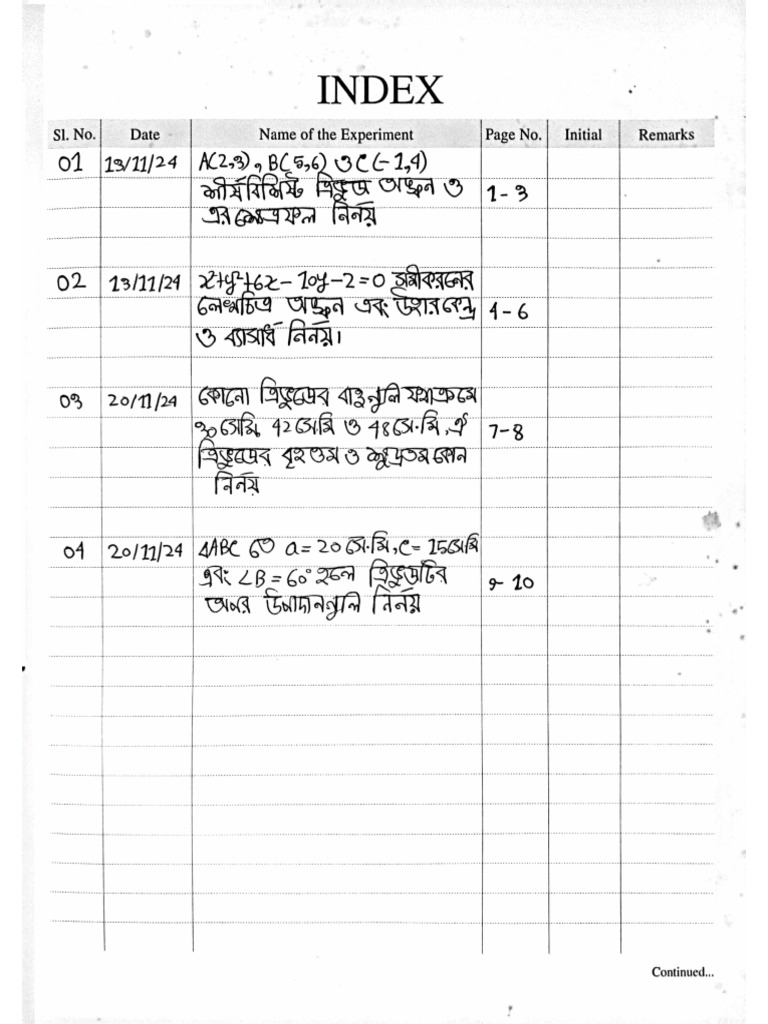 INDEX
Sl. No. Date Name of the Experiment Page No. Initial Remarks
01 13/11/24 A(2,3), B(5,6) ও C(-1,4)
শীর্ষবিশিষ্ট ত্রিভুজ অঙ্কন ও 1-3
এর ক্ষেত্রফল নির্নয়
02 13/11/24 x²+y²+6x-10y-2=0 সমীকরনের
লেখচিত্র অঙ্কন এবং উহার কেন্দ্র 4-6
ও ব্যাসার্ধ নির্নয়।
03 20/11/24 কোনো ত্রিভুজের বাহুগুলি যথাক্রমে
30 সেমি, 42 সেমি ও 48 সে.মি, ঐ 7-8
ত্রিভুজের বৃহত্তম ও ক্ষুদ্রতম কোন
নির্নয়
04 20/11/24 ΔABC তে a=20 সে.মি, c=15 সেমি
এবং ∠B=60° হলে ত্রিভুজটির 9-10
অপর উপাদানগুলি নির্নয়
Continued...